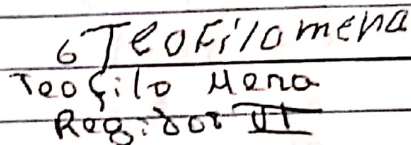 6 Teofilomena
Teofilo Mena
Regidor VI